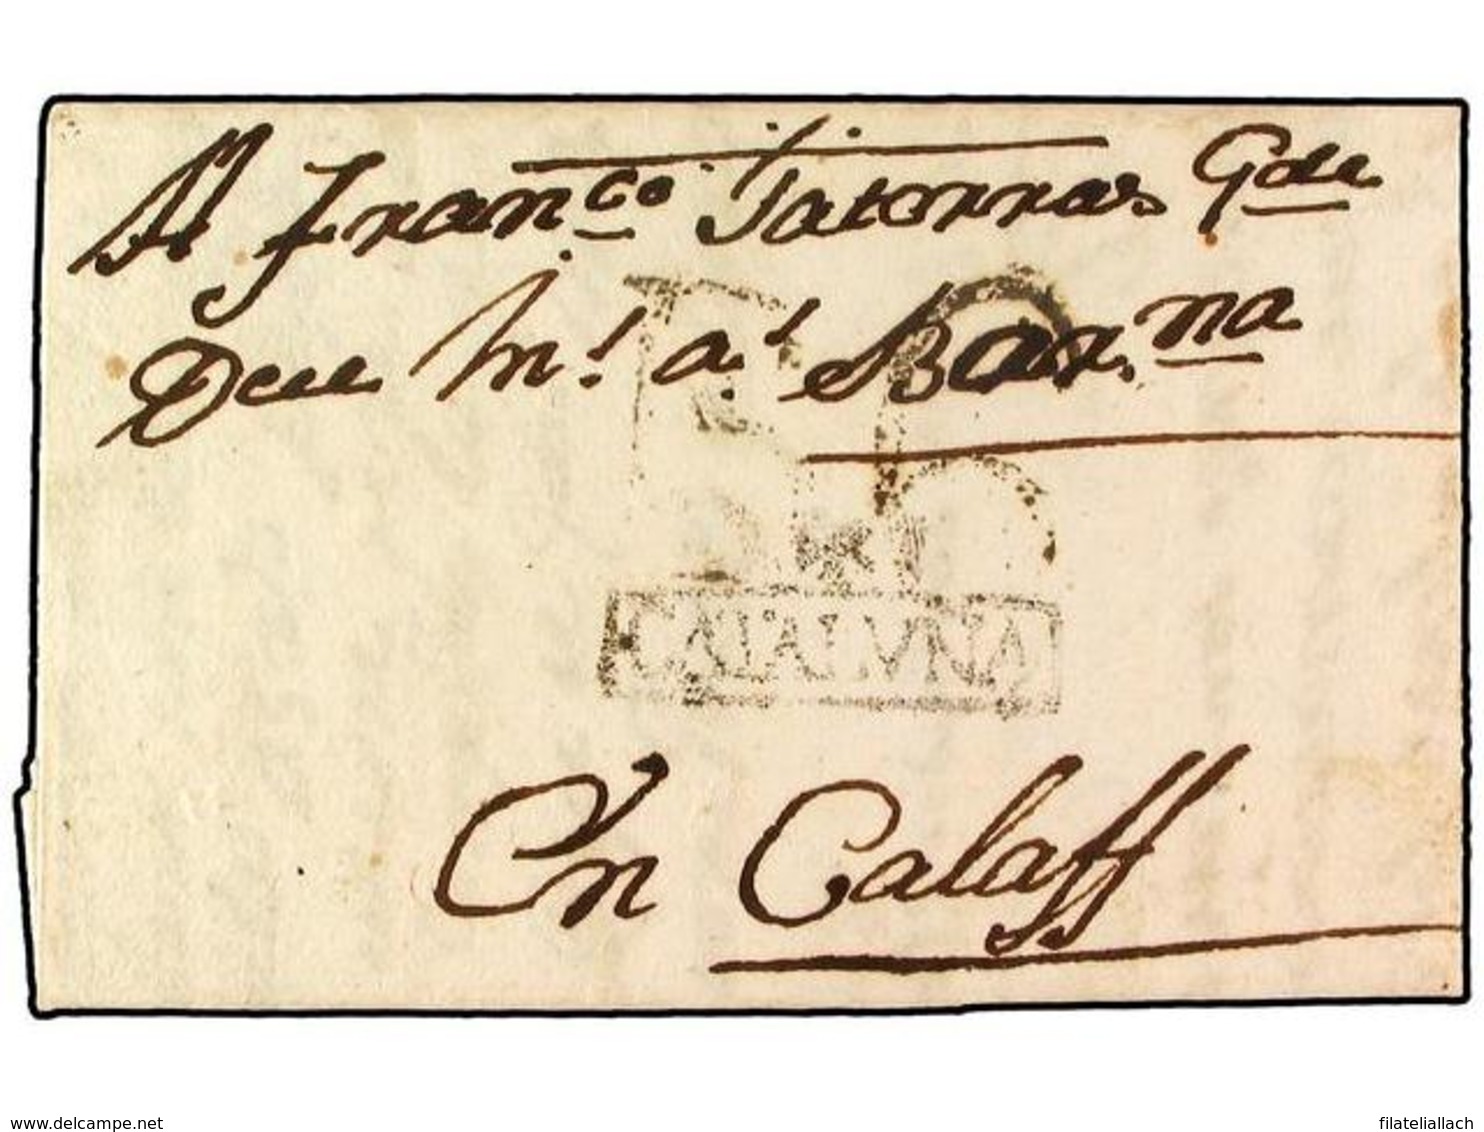 A Fran.co Jatorras Gde
Dee m.l a.l Bar.na
CATALVÑA
En Calaff
delcampe.net
filateliallach